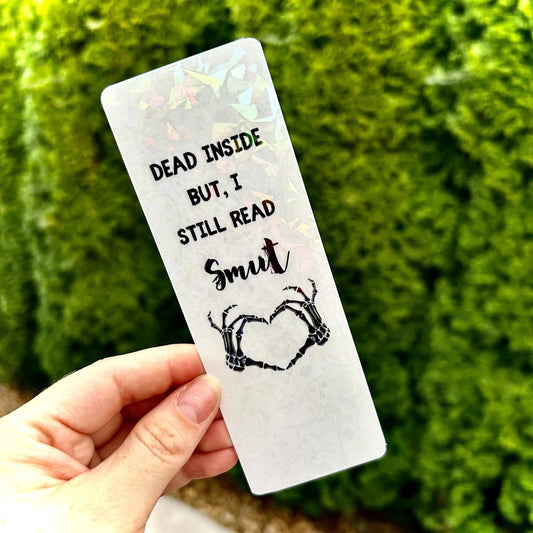 DEAD INSIDE
BUT, I
STILL READ
Smut